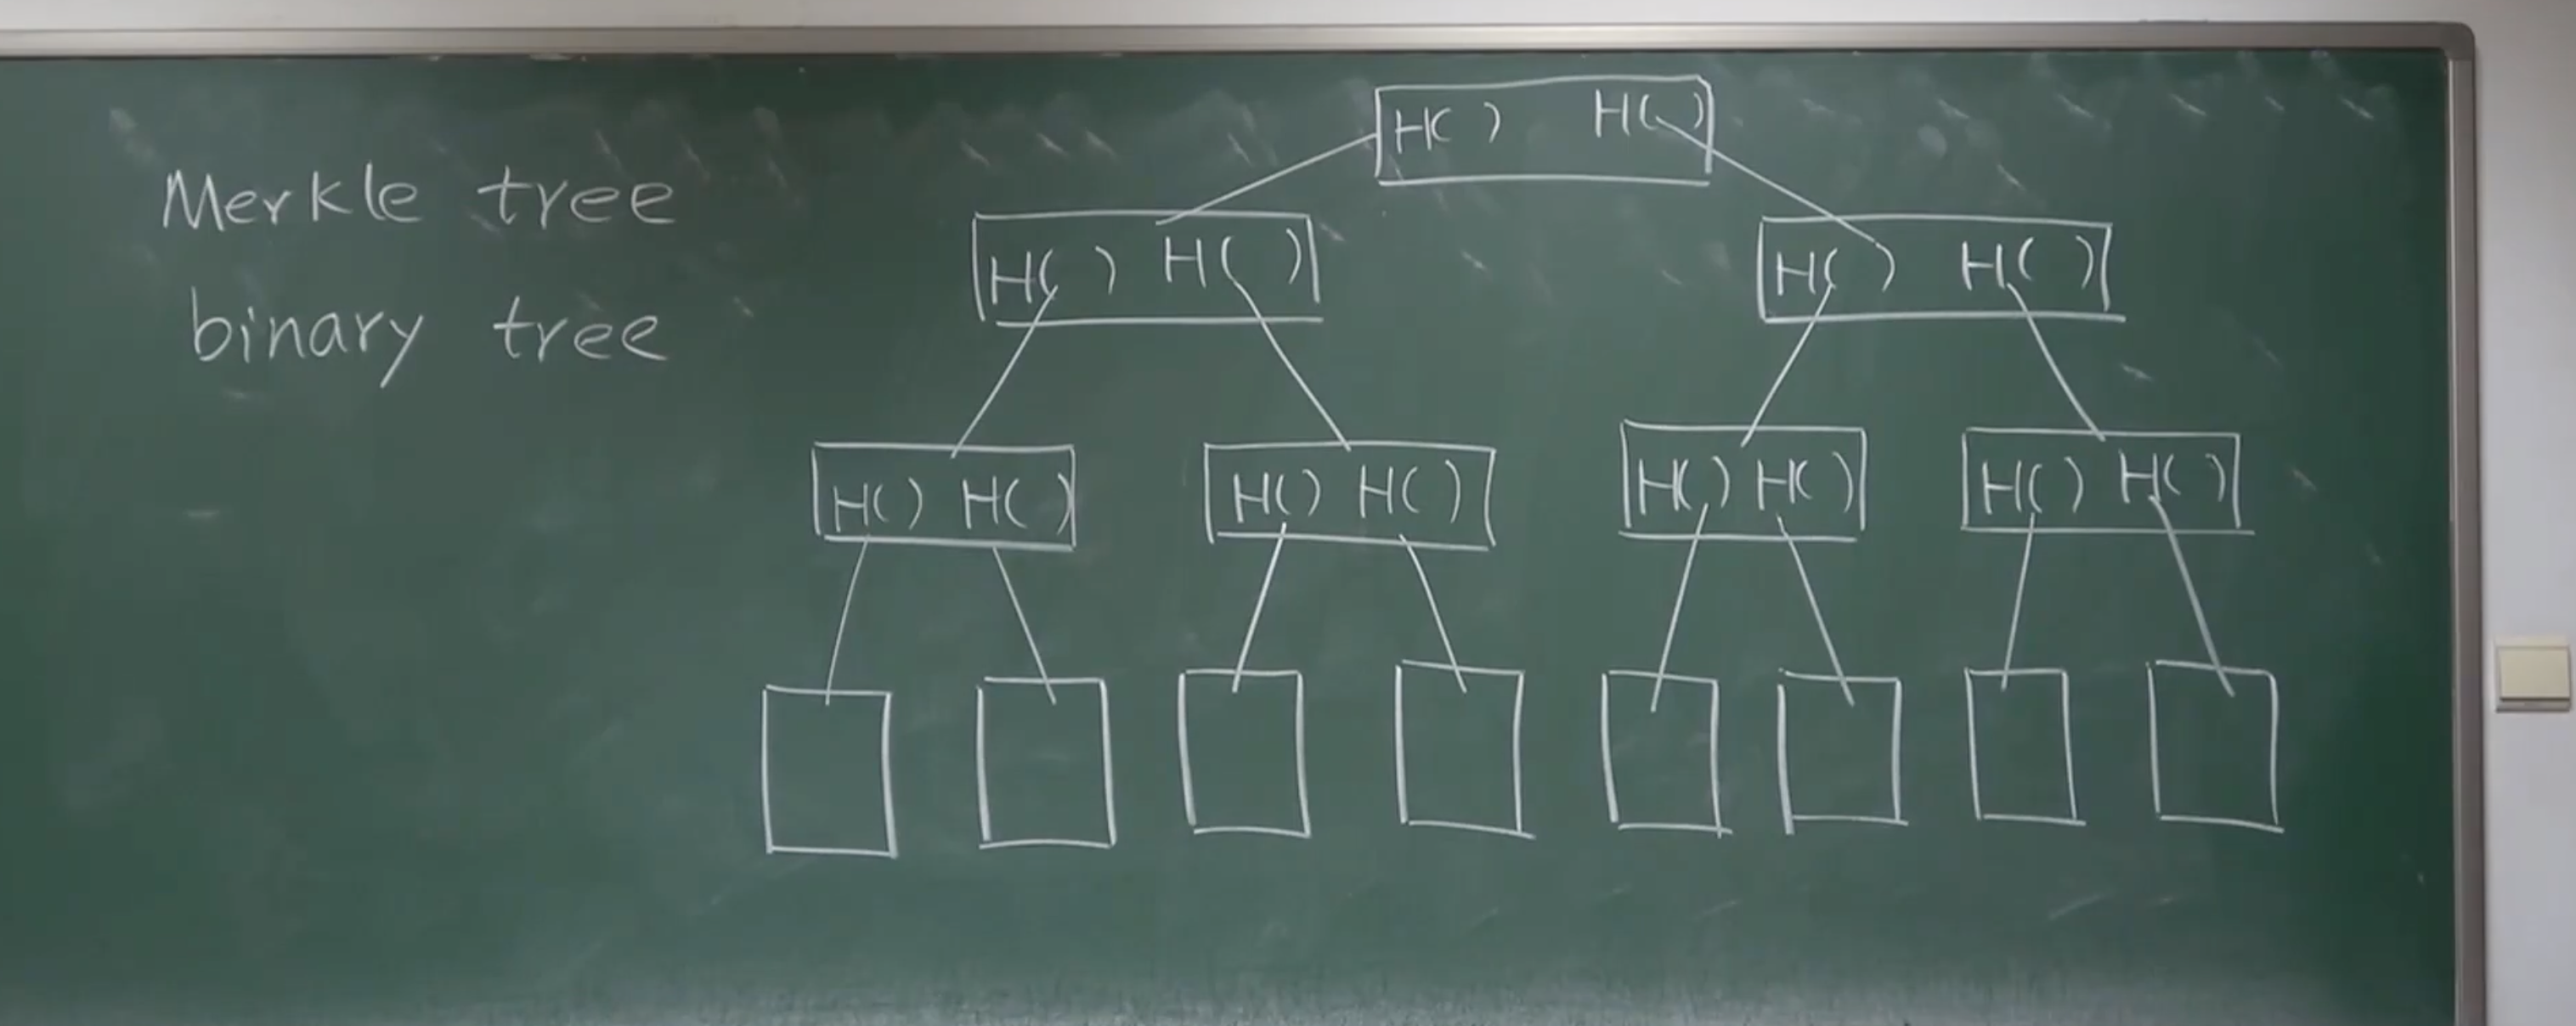 Merkle tree
binary tree
H( ) H( )
H( ) H( )
H( ) H( )
H() H()
H() H()
H() H()
H() H()